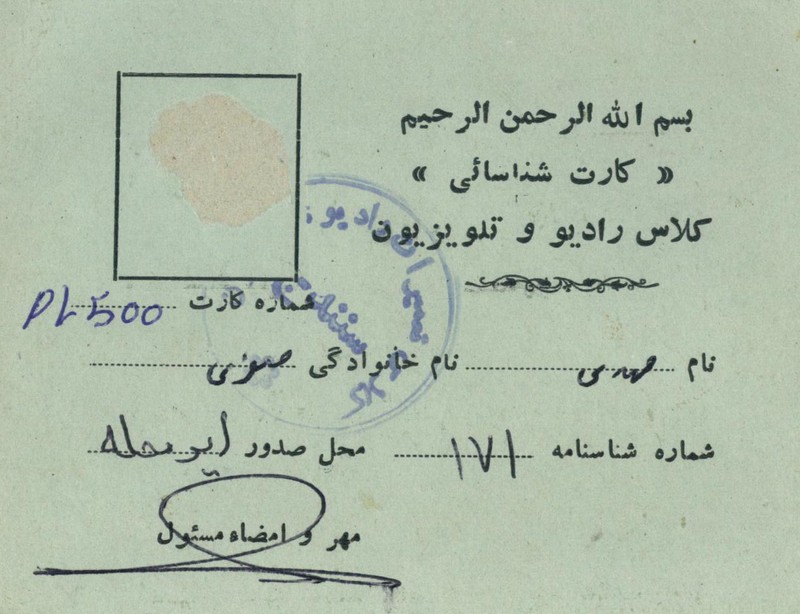 بسم الله الرحمن الرحیم
« کارت شناسائی »
کلاس رادیو و تلویزیون
شماره کارت PL500
نام مهدی نام خانوادگی
شماره شناسنامه ۱۷۱ محل صدور
مهر و امضاء مسئول